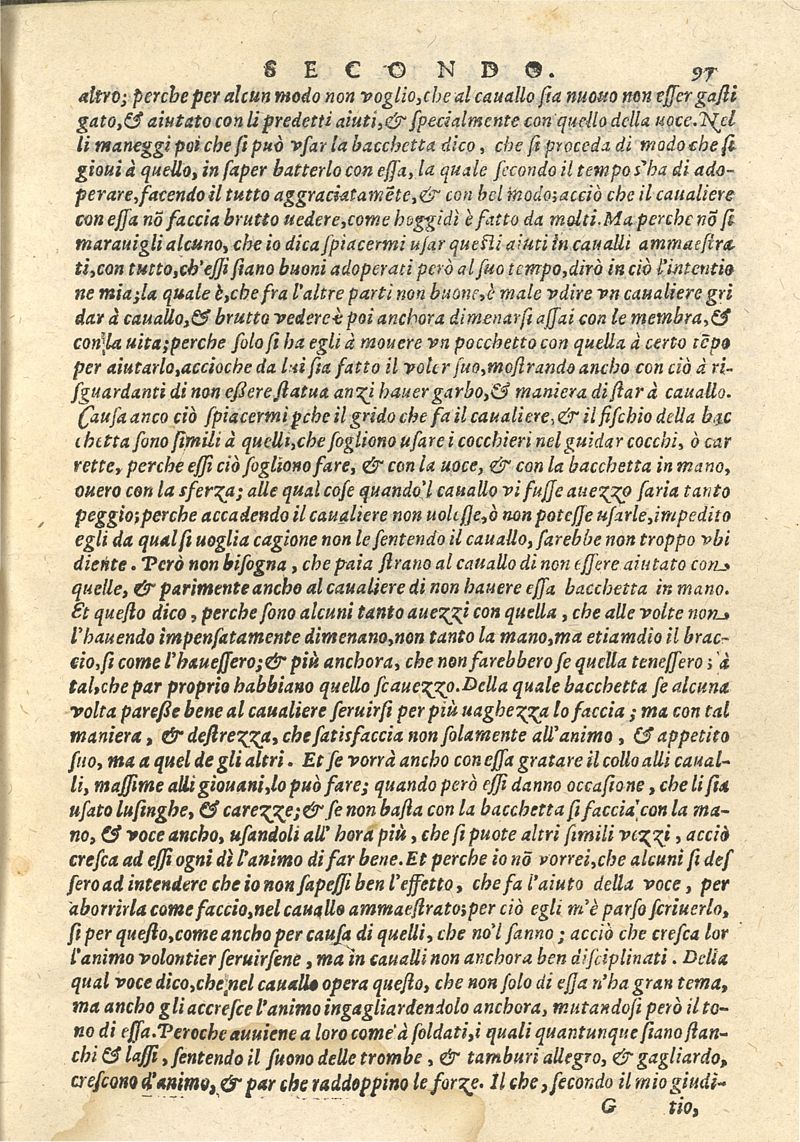 SECONDO. 97
altro; perche per alcun modo non voglio, che al cauallo sia nuouo non esser gasti
gato, & aiutato con li predetti aiuti, & specialmente con quello della uoce. Nel
li maneggi poi che si può vsar la bacchetta dico, che si proceda di modo che si
gioui à quello, in saper batterlo con essa, la quale secondo il tempo s'ha di ado-
perare, facendo il tutto aggraciatamẽte, & con bel modo; acciò che il caualiere
con essa nõ faccia brutto uedere, come hoggidì è fatto da molti. Ma perche nõ si
marauigli alcuno, che io dica spiacermi usar questi aiuti in caualli ammaestra
ti, con tutto, ch'essi siano buoni adoperati però al suo tempo, dirò in ciò l'intentio
ne mia; la quale è, che fra l'altre parti non buone, è male vdire vn caualiere gri
dar à cauallo, & brutto vedere è poi anchora dimenarsi assai con le membra, &
con la uita; perche solo si ha egli à mouere vn pocchetto con quella à certo tẽpo
per aiutarlo, accioche da lui sia fatto il voler suo, mostrando ancho con ciò à ri-
sguardanti di non essere statua anzi hauer garbo, & maniera di star à cauallo.
Causa anco ciò spiacermi pche il grido che fa il caualiere, & il fischio della bac
chetta sono simili à quelli, che sogliono usare i cocchieri nel guidar cocchi, ò car
rette, perche essi ciò sogliono fare, & con la uoce, & con la bacchetta in mano,
ouero con la sferza; alle qual cose quando'l cauallo vi fusse auezzo saria tanto
peggio; perche accadendo il caualiere non uolesse, ò non potesse usarle, impedito
egli da qual si uoglia cagione non le sentendo il cauallo, sarebbe non troppo vbi
diente. Però non bisogna, che paia strano al cauallo di non essere aiutato con
quelle, & parimente ancho al caualiere di non hauere essa bacchetta in mano.
Et questo dico, perche sono alcuni tanto auezzi con quella, che alle volte non
l'hauendo impensatamente dimenano, non tanto la mano, ma etiamdio il brac-
cio, si come l'hauessero; & più anchora, che non farebbero se quella tenessero; à
tal, che par proprio habbiano quello scauezzo. Della quale bacchetta se alcuna
volta paresse bene al caualiere seruirsi per più uaghezza lo faccia; ma con tal
maniera, & destrezza, che satisfaccia non solamente all'animo, & appetito
suo, ma a quel de gli altri. Et se vorrà ancho con essa gratare il collo alli caual-
li, massime alli giouani, lo può fare; quando però essi danno occasione, che li sia
usato lusinghe, & carezze; & se non basta con la bacchetta si faccia con la ma-
no, & voce ancho, usandoli all' hora più, che si puote altri simili vezzi, acciò
cresca ad essi ogni dì l'animo di far bene. Et perche io nõ vorrei, che alcuni si des
sero ad intendere che io non sapessi ben l'effetto, che fa l'aiuto della voce, per
aborrirla come faccio, nel cauallo ammaestrato; per ciò egli m'è parso scriuerlo,
si per questo, come ancho per causa di quelli, che no'l sanno; acciò che cresca lor
l'animo volontier seruirsene, ma in caualli non anchora ben disciplinati. Della
qual voce dico, che nel cauallo opera questo, che non solo di essa n'ha gran tema,
ma ancho gli accresce l'animo ingagliardendolo anchora, mutandosi però il to-
no di essa. Peroche auuiene a loro come à soldati, i quali quantunque siano stan-
chi & lassi, sentendo il suono delle trombe, & tamburi allegro, & gagliardo,
crescono d'animo, & par che raddoppino le forze. Il che, secondo il mio giudi-
G tio,